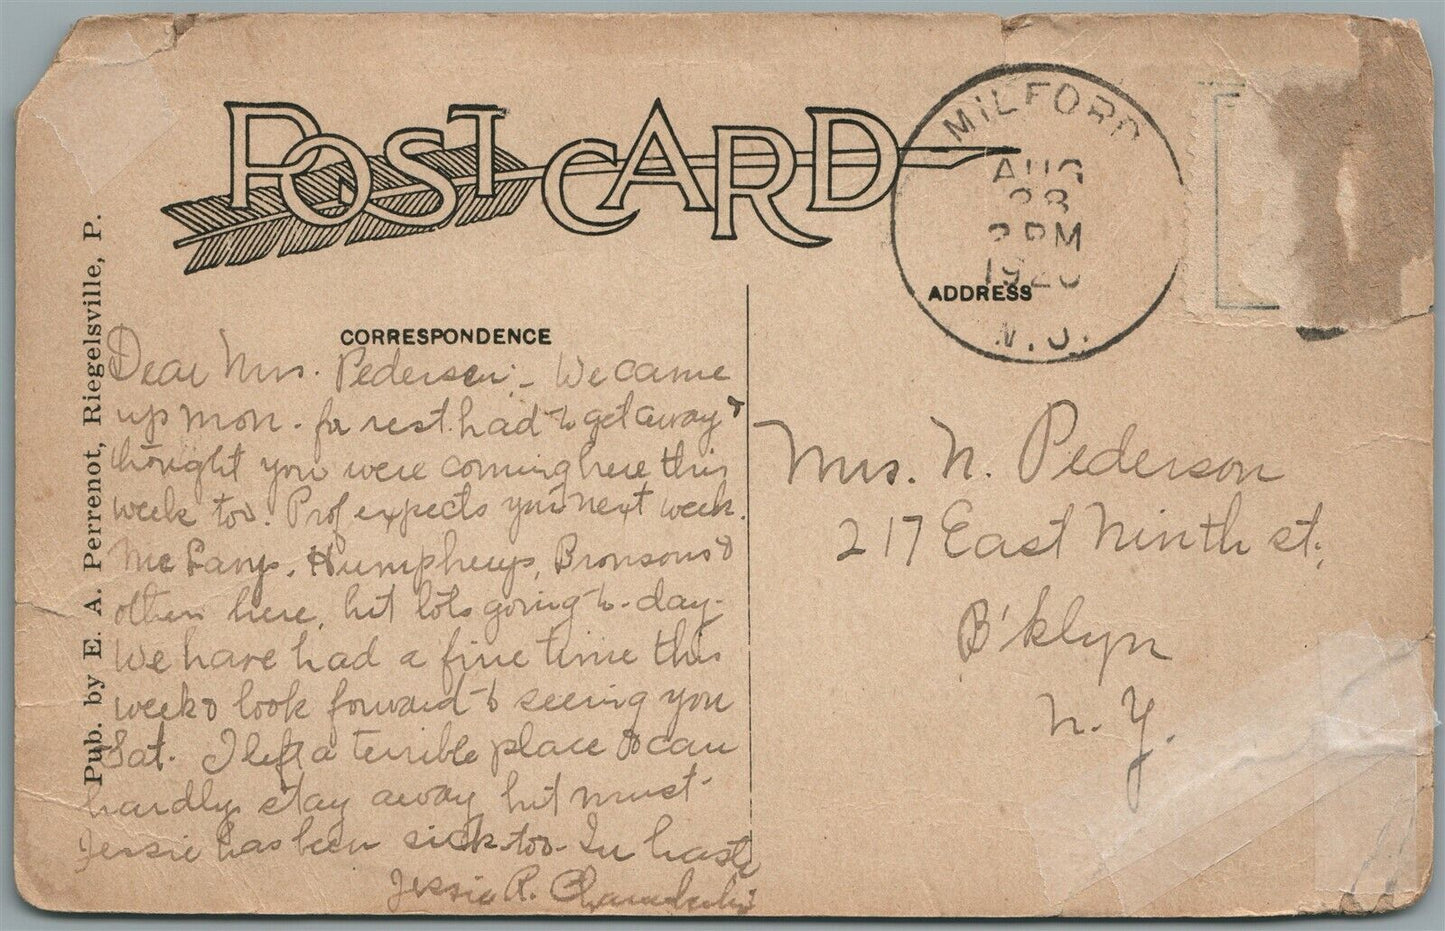 POST CARD
MILFORD
AUG
28
PM
192
N.J.
ADDRESS
CORRESPONDENCE
Pub. by E. A. Perrenot, Riegelsville, P.
Dear Mrs. Pedersen:- We came
up Mon. for rest. had to get away &
thought you were coming here this
week too. Prof expects you next week.
Humphreys, Bronsons &
others here, but lots going to-day-
We have had a fine time this
week & look forward to seeing you
Sat. I left a terrible place & can
hardly stay away but must-
Jessie has been sick too- In haste
Jessie R. Chamberlin
Mrs. N. Pederson
217 East Ninth st.,
B'klyn
N.Y.